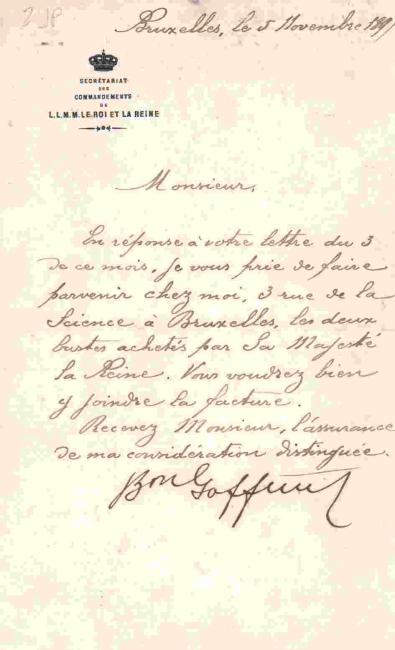 2 JP
Bruxelles, le 5 Novembre
SECRÉTARIAT
DES
COMMANDEMENTS
DE
L.L.M.M. LE ROI ET LA REINE
Monsieur,
En réponse à votre lettre du 3
de ce mois, je vous prie de faire
parvenir chez moi, 3 rue de la
Science à Bruxelles, les deux
bustes achetés par Sa Majesté
la Reine. Vous voudrez bien
y joindre la facture.
Recevez Monsieur, l'assurance
de ma considération distinguée.
Bon Goffinet